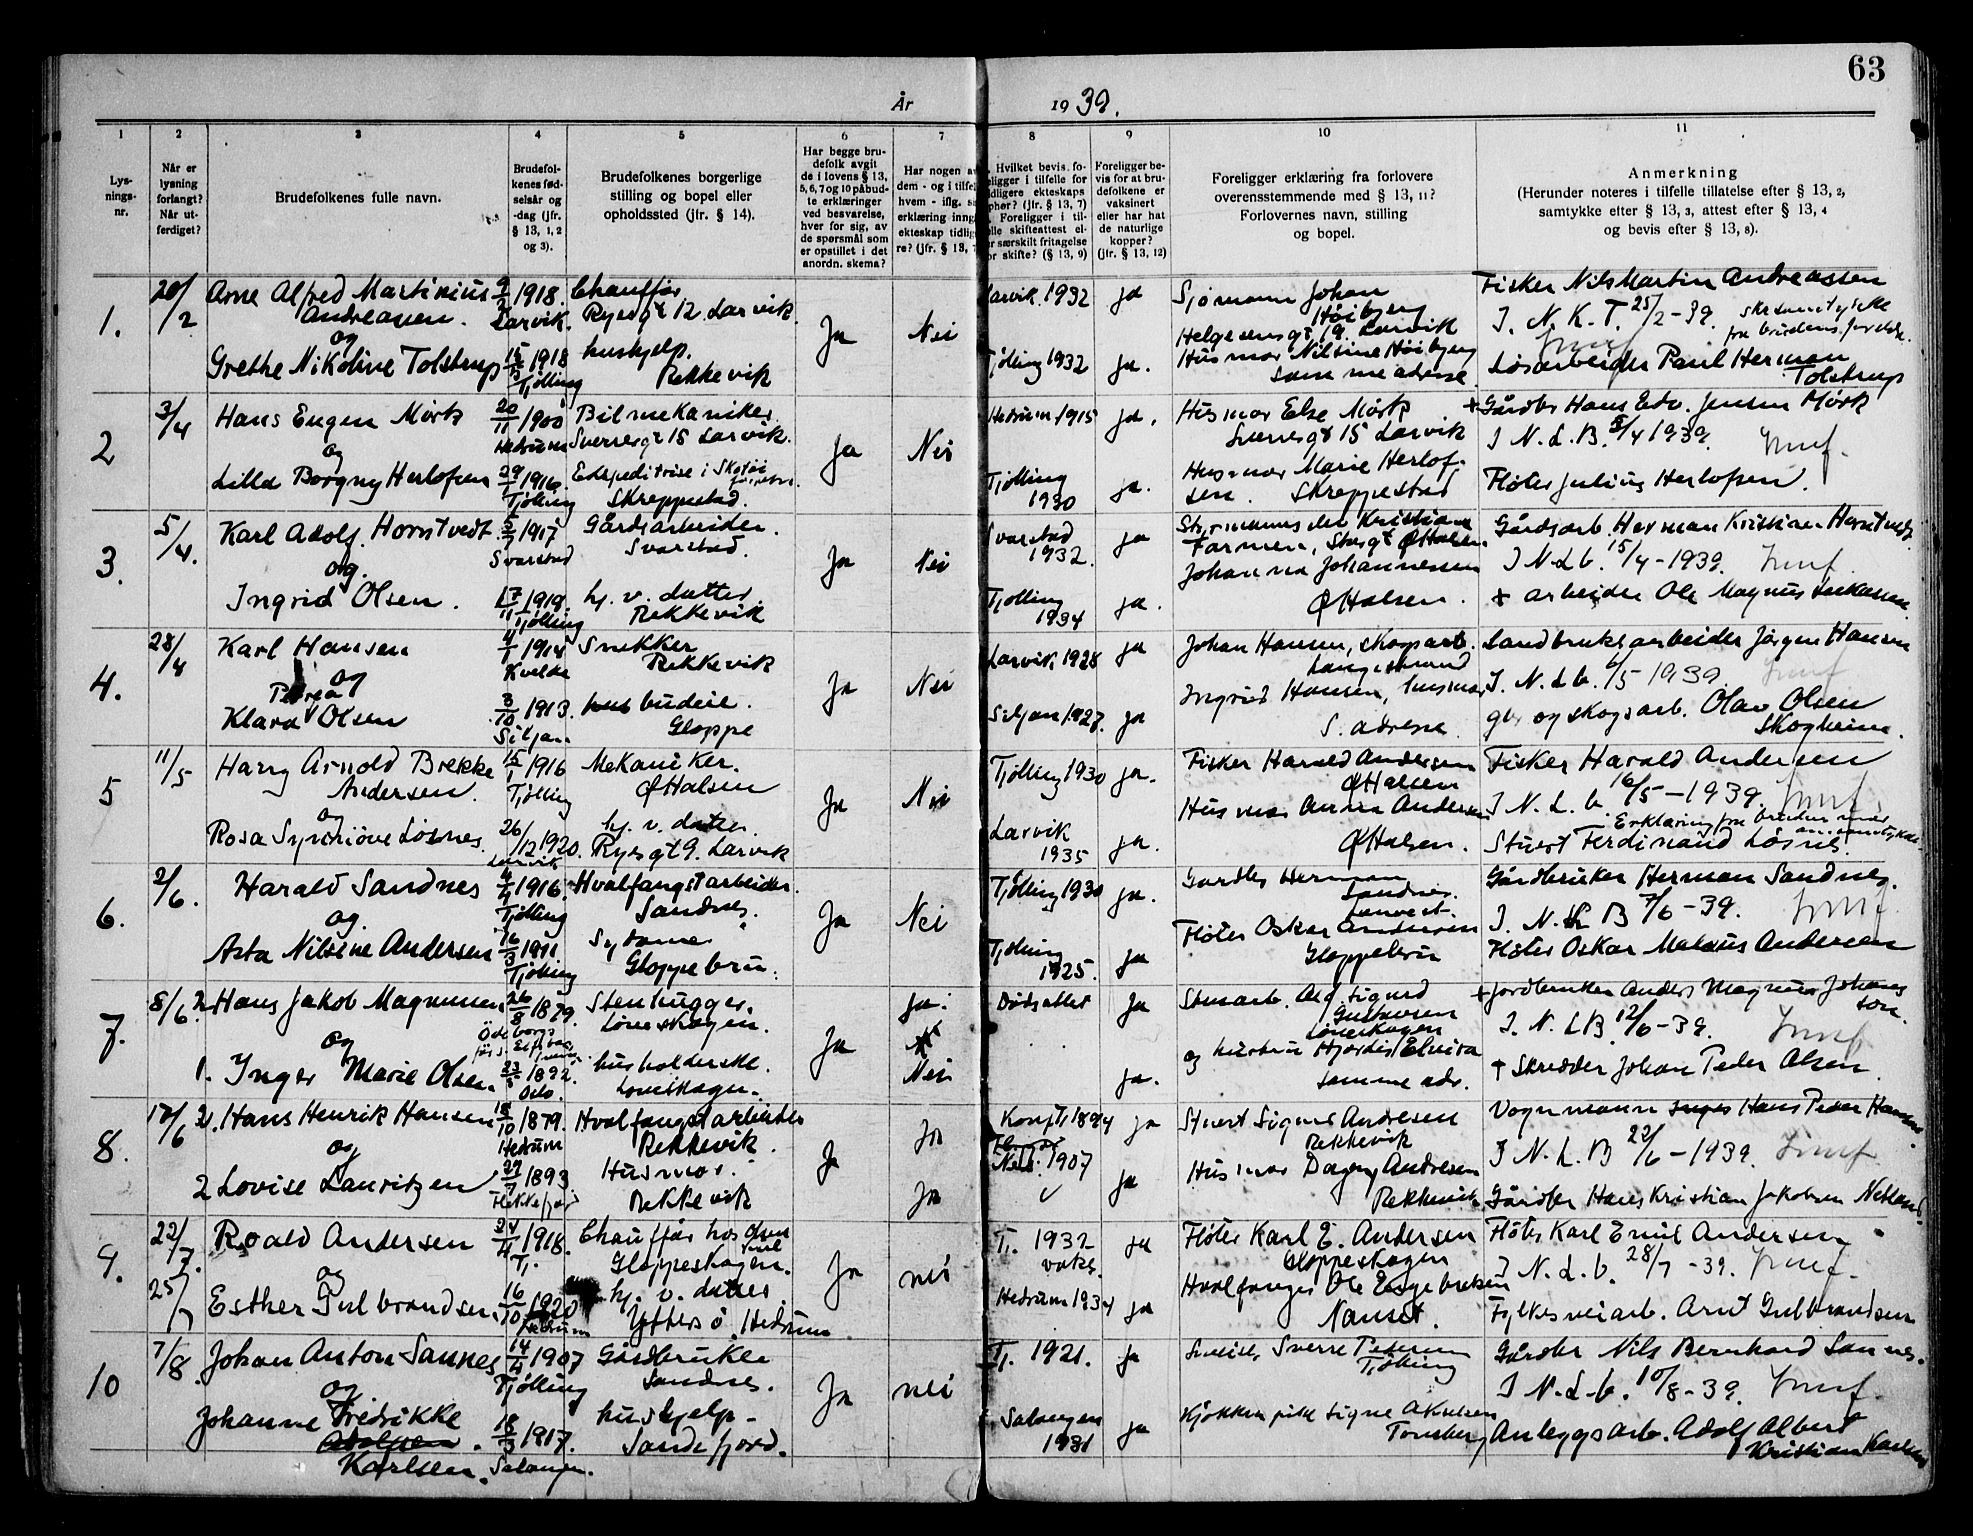 63
År 1939.
1
2
3
4
5
6
7
8
9
10
11
Lys-
nings-
nr.
Når er
lysning
forlangt?
Når ut-
ferdiget?
Brudefolkenes fulle navn.
Brudefol-
kenes fød-
selsår og
-dag (jfr.
§ 13, 1, 2
og 3).
Brudefolkenes borgerlige
stilling og bopel eller
opholdssted (jfr. § 14).
Har begge bru-
defolk avgit
de i lovens § 13,
5, 6, 7 og 10 påbud-
te erklæringer
ved besvarelse,
hver for sig, av
de spørsmål som
er opstillet i det
anordn. skema?
Har nogen a
dem - og i tilfel
hvem - iflg. s
erklæring inng
ekteskap tidlig
re? (jfr. § 13, 7
Hvilket bevis fo-
eligger i tilfelle for
idligere ekteskaps
phør? (jfr. § 13, 7)
Foreligger i til-
elle skifteattest el-
r særskilt fritagelse
or skifte? (§ 13, 9)
Foreligger be-
vis for at bru-
defolkene er
vaksinert
eller har hat
de naturlige
kopper?
(jfr. § 13, 12)
Foreligger erklæring fra forlovere
overensstemmende med § 13, 11?
Forlovernes navn, stilling
og bopel.
Anmerkning
(Herunder noteres i tilfelle tillatelse efter § 13, 2,
samtykke efter § 13, 3, attest efter § 13, 4
og bevis efter § 13, 8).
1.
20/2
Arne Alfred Martinius
Andreassen.
og
Grethe Nikoline Tolstrup
1918.
Larvik.
15/5 1918
Tjølling
Chauffør
Ryesgt 12. Larvik.
hushjelp.
Rekkevik
Ja
Nei
Larvik 1932
Tjølling 1932
ja
ja.
Sjømann Johan
Høibjerg
Helgesensgt 19. Larvik
Husmor Nilsine Høibjerg
samme adresse
Fisker Nils Martin Andreassen
I. N. K. T. 25/2-39.
Løsarbeider Paul Herman
Tolstrup
2
3/4
Hans Eugen Mørk
og
Lilla Borgny Herlofsen
20/11 1900
Hedrum
1916.
Tjølling
Bilmekaniker
Sverresgt 15 Larvik.
Ekspeditrise i Skotøi
Skreppestad.
Ja
Nei
Hedrum 1915
Tjølling
1930
ja.
ja.
Husmor Else Mørk
Sverresgt 15 Larvik
Husmor Marie Herlof-
sen. Skreppestad
+ Gårdbr Hans Edv. Jensen Mørk
I N. L. B. 8/4 1939.
Fløter Julius Herlofsen.
3.
5/4.
Karl Adolf Horntvedt
og.
Ingrid Olsen.
1917
Svarstad
17/11 1919.
Tjølling
Gårdsarbeider.
Svarstad.
hj. v. datter.
Rekkevik
Ja
Nei
Svarstad
1932.
Tjølling
1934
ja
ja.
Farmen, Ø Halsen.
Johanna Johannessen
Ø Halsen.
Gårdsarb. Herman Kristian Horntvedt.
I N L b. 15/4-1939.
+ arbeider Ole Magnus
4.
28/4
Karl Hansen
og
Petrea
Klara Olsen
4/1 1914
Kvelde
3/10 1913.
Siljan
Snekker
Rekkevik
budeie.
Gloppe
Ja
Nei
Larvik 1928
Siljan 1927.
ja
ja
Johan Hansen, skogsarb.
Langestrand
Ingrid Hansen, husmor
S. adresse
Landbruksarbeider Jørgen Hansen
I. N. L b. 6/5-1939.
gbr og skogsarb. Olav Olsen
Skogheim.
5
11/5
Harry Arnold Brekke
Andersen.
og
Rosa Synnøve Løsnes.
15/1 1916
Tjølling
26/12 1920.
Larvik
Mekaniker.
Ø Halsen
hj. v. datter.
Ryesgt 9. Larvik
Ja
Nei
Tjølling 1930
Larvik
1935
ja.
ja.
Fisker Harald Andersen
Ø Halsen
Husmor Anna Andersen
Ø Halsen.
Fisker Harald Andersen
I N. L. b. 16/5-1939.
Erklæring fra brudens mor
Stuert Ferdinand Løsnes.
6.
2/6.
Harald Sandnes
og.
Asta Nilsine Andersen
4/4 1916.
Tjølling
16/3 1911
Tjølling
Hvalfangstarbeider.
Sandnes.
Sydame
Gloppebru.
Ja
Nei
Tjølling 1930
Tjølling
1925.
ja.
ja
Gardbr Herman
Sandnes.
Fløter Oskar Andersen
Gloppebru
Gårdbruker Herman Sandnes.
I. N. L B 7/6-39.
Fløter Oskar Andersen
7.
8/6
2 Hans Jakob Magnussen
og
1. Inger Marie Olsen.
26/8 1879.
1892.
Oslo.
Stenhugger.
Løveskogen.
husholderske.
Løveskogen.
Ja
ja.
Nei
Dødsattest
ja
ja.
Stenarb. Alf Sigurd
Gustavsen
Løveskogen
og hustru Hjørdis Elvira
samme adr.
+ jordbruker Anders Magnus Johans
son.
I. N. L B. 12/6-39.
+ Skredder Johan Peder Olsen
8.
17/6
2. Hans Henrik Hansen
og
2 Lovise Lauritzen
1879.
Hedrum
1893
Flekkefjord
Hvalfangstarbeider
Rekkevik.
Husmor.
Rekkevik
Ja
Ja
Konf. 1894
1907
ja
ja
Stuert Sigurd Andresen
Rekkevik
Husmor Dagny Andresen
Rekkevik
Vognmann Hans Peder Hansen
I N. L. B 22/6-1939.
Gårdbr Hans Kristian Jakobsen
9.
22/7.
25/7
Roald Andersen
og
Esther Gulbrandsen.
24/4 1918.
Tj.
16/10 1920
Hedrum
Chauffør hos Olsen
Gloppeskogen.
hj. v. datter.
Yttersø. Hedrum
Ja
nei
Tj. 1932
vaks.
Hedrum 1934
ja
ja
Fløter Karl E. Andersen
Gloppeskogen
Hvalfanger Ole
Nanset.
Fløter Karl Emil Andersen
I N. L. b. 28/7-39.
Fylkesveiarb. Arnt Gulbrandsen
10
7/8.
Johan Anton Sannes
og
Johanne Fredrikke
Karlsen.
14/4 1907
Tjølling
18/3 1917.
Salangen.
Gårdbruker
Sandnes.
hushjelp-
Sandefjord.
Ja
nei
Tj. 1921.
Salangen
1931
ja
ja
Sverre Petersen
Tjølling
Kjøkkenpike Signe Akselsen
Tønsberg
Gårdbr Nils Bernhard Sannes.
I N. L. b. 10/8-39.
Anleggsarb. Adolf Albert
Kristian Karlsen